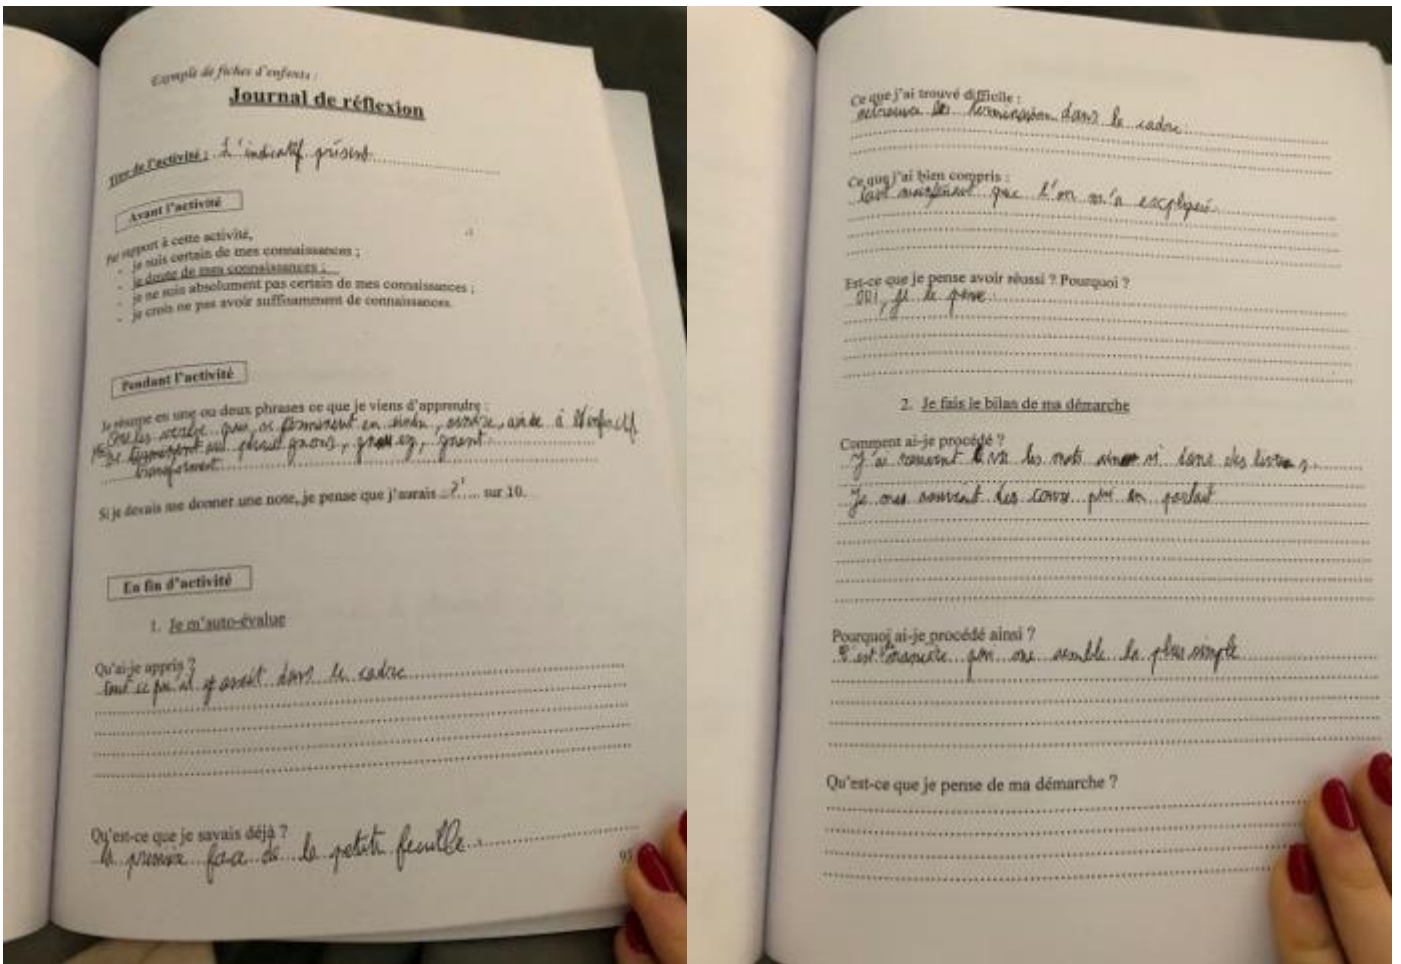 Exemple de fiches d'enfants :
Journal de réflexion
Titre de l'activité : L'indicatif présent
Avant l'activité
Par rapport à cette activité,
- je suis certain de mes connaissances ;
- je doute de mes connaissances ;
- je ne suis absolument pas certain de mes connaissances ;
- je crois ne pas avoir suffisamment de connaissances.
Pendant l'activité
Je résume en une ou deux phrases ce que je viens d'apprendre :
les verbe qui se terminent en eindre, oindre, aindre à l'infinitif
se au pluriel gnons, gnez, gnent.
transforment
Si je devais me donner une note, je pense que j'aurais ..?.. sur 10.
En fin d'activité
1. Je m'auto-évalue
Qu'ai-je appris ?
tout ce qu'il y avait dans le cadre
Qu'est-ce que je savais déjà ?
la face de la petite feuille.
95
Ce que j'ai trouvé difficile :
retrouver les terminaison dans le cadre
Ce que j'ai bien compris :
tout maintenant que l'on m'a expliqué.
Est-ce que je pense avoir réussi ? Pourquoi ?
OUI, je le pense.
2. Je fais le bilan de ma démarche
Comment ai-je procédé ?
J'ai souvent lu les mots dans des livres.
Je me souvient des cours qui en parlait
Pourquoi ai-je procédé ainsi ?
C'est manière qui me semble la plus simple
Qu'est-ce que je pense de ma démarche ?